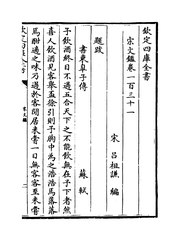 欽定四庫全書
宋文鑑卷一百三十一
宋 呂祖謙 編
題跋
書東皐子傳　蘇軾
予飲酒終日不過五合天下之不能飲無在予下者然
喜人飲酒見客舉盃徐引則予胸中為之浩浩焉落落
焉酣適之味乃過於客閒居未嘗一日無客客至未嘗
欽定四庫全書
宋文鑑